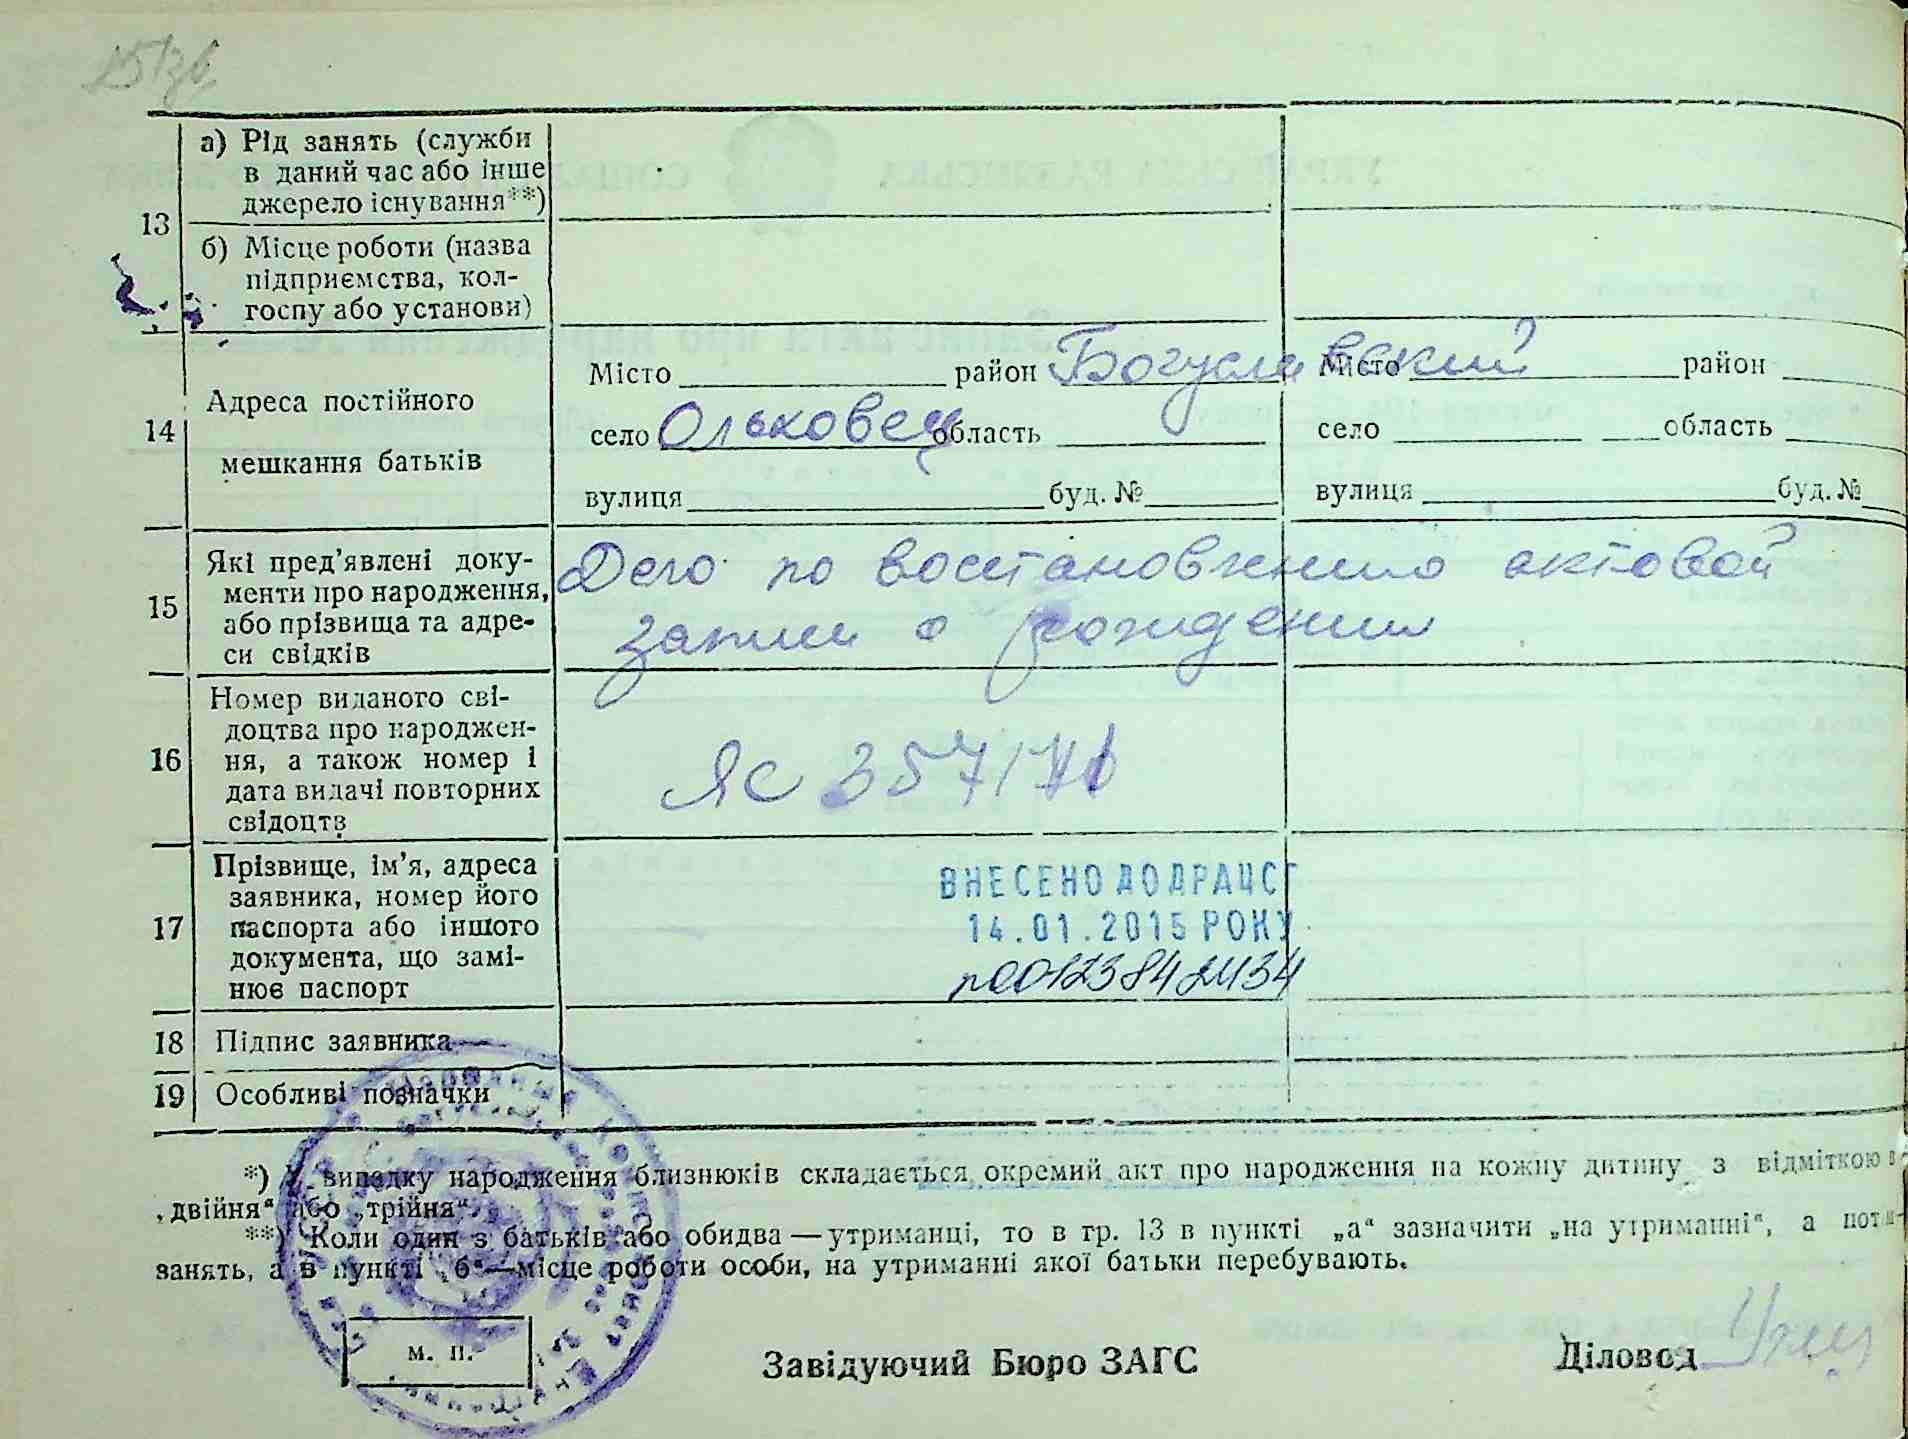 13
а) Рід занять (служби
в даний час або інше
джерело існування**)
б) Місце роботи (назва
підприємства, кол-
госпу або установи)
14
Адреса постійного
мешкання батьків
Місто район Богуславский Місто район
село Ольховец область село область
вулиця буд. № вулиця буд. №
15
Які пред'явлені доку-
менти про народження,
або прізвища та адре-
си свідків
Дело по восстановлению актовой
записи о рождении
16
Номер виданого сві-
доцтва про народжен-
ня, а також номер і
дата видачі повторних
свідоцтв
ЯС 357176
17
Прізвище, ім'я, адреса
заявника, номер його
паспорта або іншого
документа, що замі-
нює паспорт
ВНЕСЕНО ДО ДРАЦСГ
14.01.2015 РОКУ
18 Підпис заявника
19 Особливі позначки
*) У випадку народження близнюків складається окремий акт про народження на кожну дитину з відміткою
„двійня“ або „трійня“.
**) Коли один з батьків або обидва — утриманці, то в гр. 13 в пункті „а“ зазначити „на утриманні“, а
занять, а в пункті „б“—місце роботи особи, на утриманні якої батьки перебувають.
м. п.
Завідуючий Бюро ЗАГС Діловод